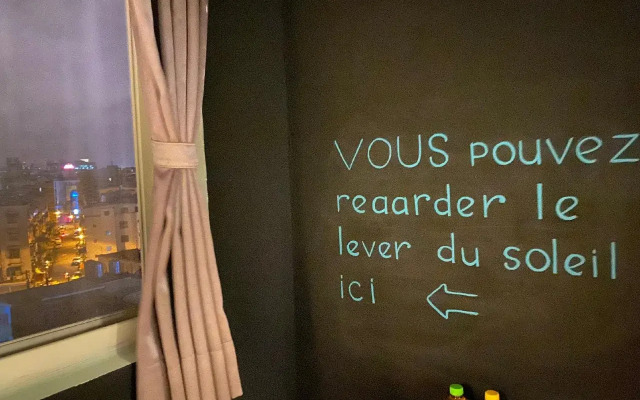 VOUS pouvez
reaarder le
lever du soleil
ici